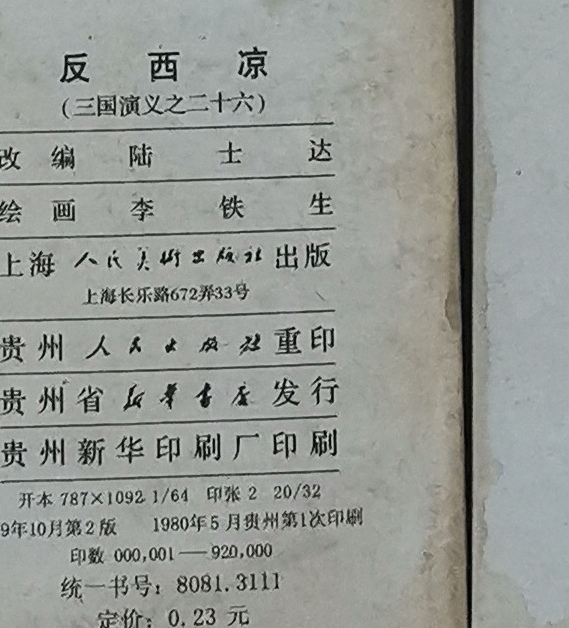 反西凉
(三国演义之二十六)
改编 陆士达
绘画 李铁生
上海人民美术出版社出版
上海长乐路672弄33号
贵州人民出版社重印
贵州省新华书店发行
贵州新华印刷厂印刷
开本 787×1092 1/64 印张 2 20/32
9年10月第2版 1980年5月贵州第1次印刷
印数 000,001—920,000
统一书号：8081.3111
定价：0.23 元